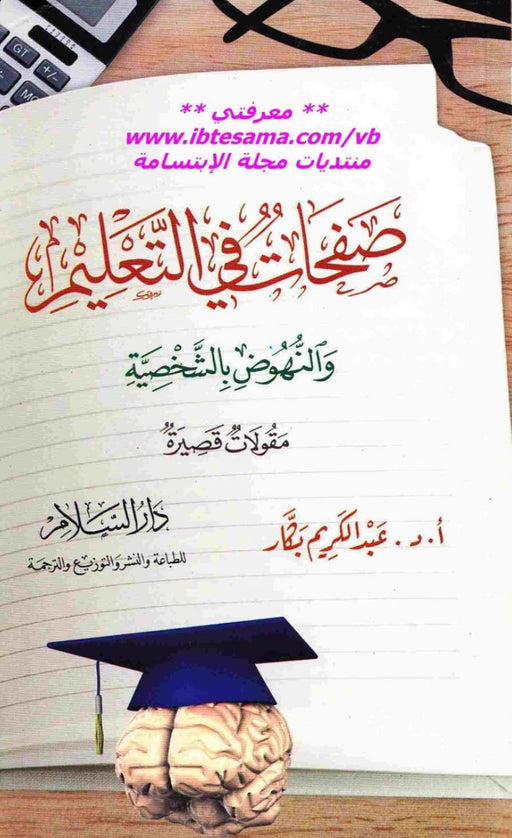 GT
+/−
** معرفتي **
www.ibtesama.com/vb
منتديات مجلة الإبتسامة
صَفَحَاتٌ في التَّعْلِيمِ
وَالنُّهُوضِ بِالشَّخْصِيَّةِ
مَقُولَاتٌ قَصِيرَةٌ
أ.د. عَبْد الكَرِيم بَكَّار
دَارُ السَّلَامِ
للطباعة والنشر والتوزيع والترجمة